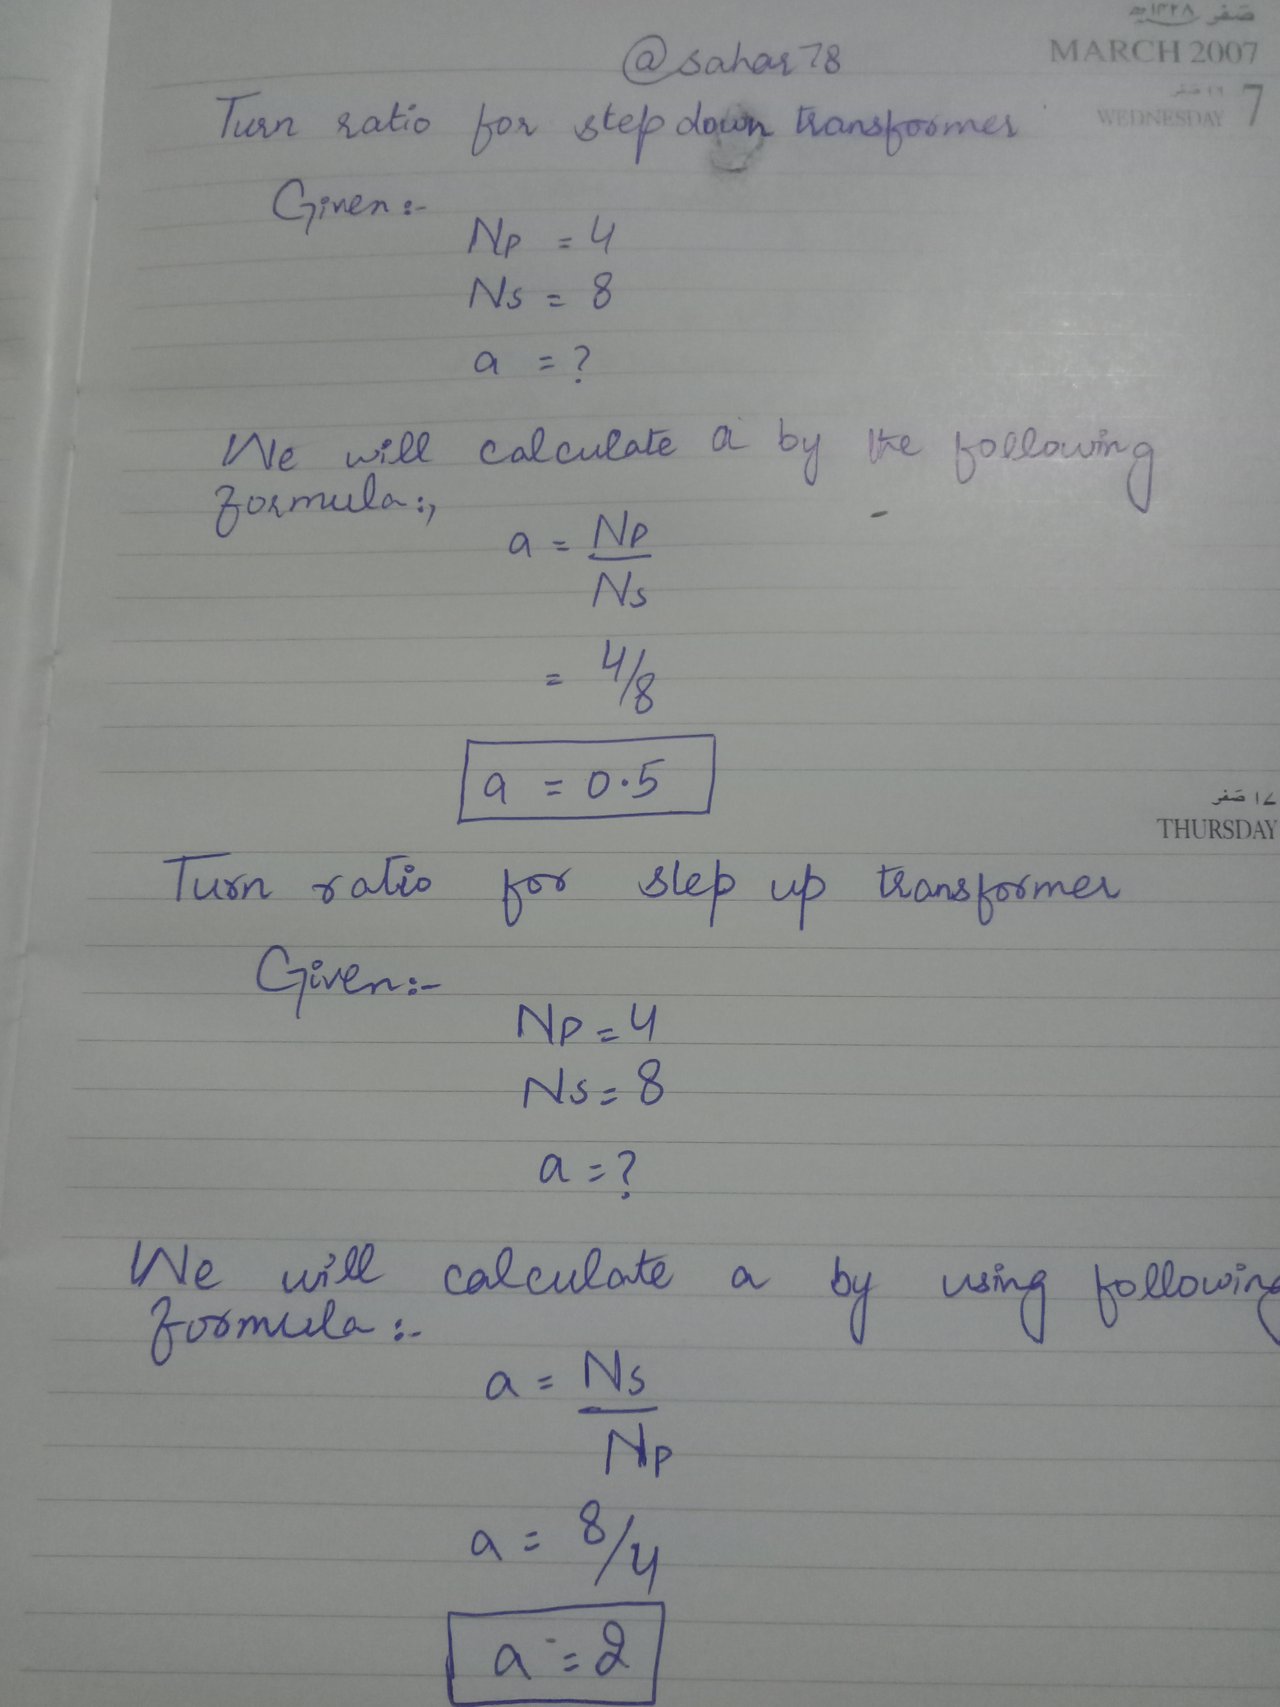 صفر ١٤٢٨هـ
MARCH 2007
@sahar78
١٦ صفر
WEDNESDAY 7
Turn ratio for step down transformer
Given:-
Np = 4
Ns = 8
a = ?
We will calculate a by the following
formula:,
a = Np
Ns
= 4/8
a = 0.5
١٧ صفر
THURSDAY
Turn ratio for step up transformer
Given:-
Np = 4
Ns = 8
a = ?
We will calculate a by using following
formula:-
a = Ns
Np
a = 8/4
a = 2